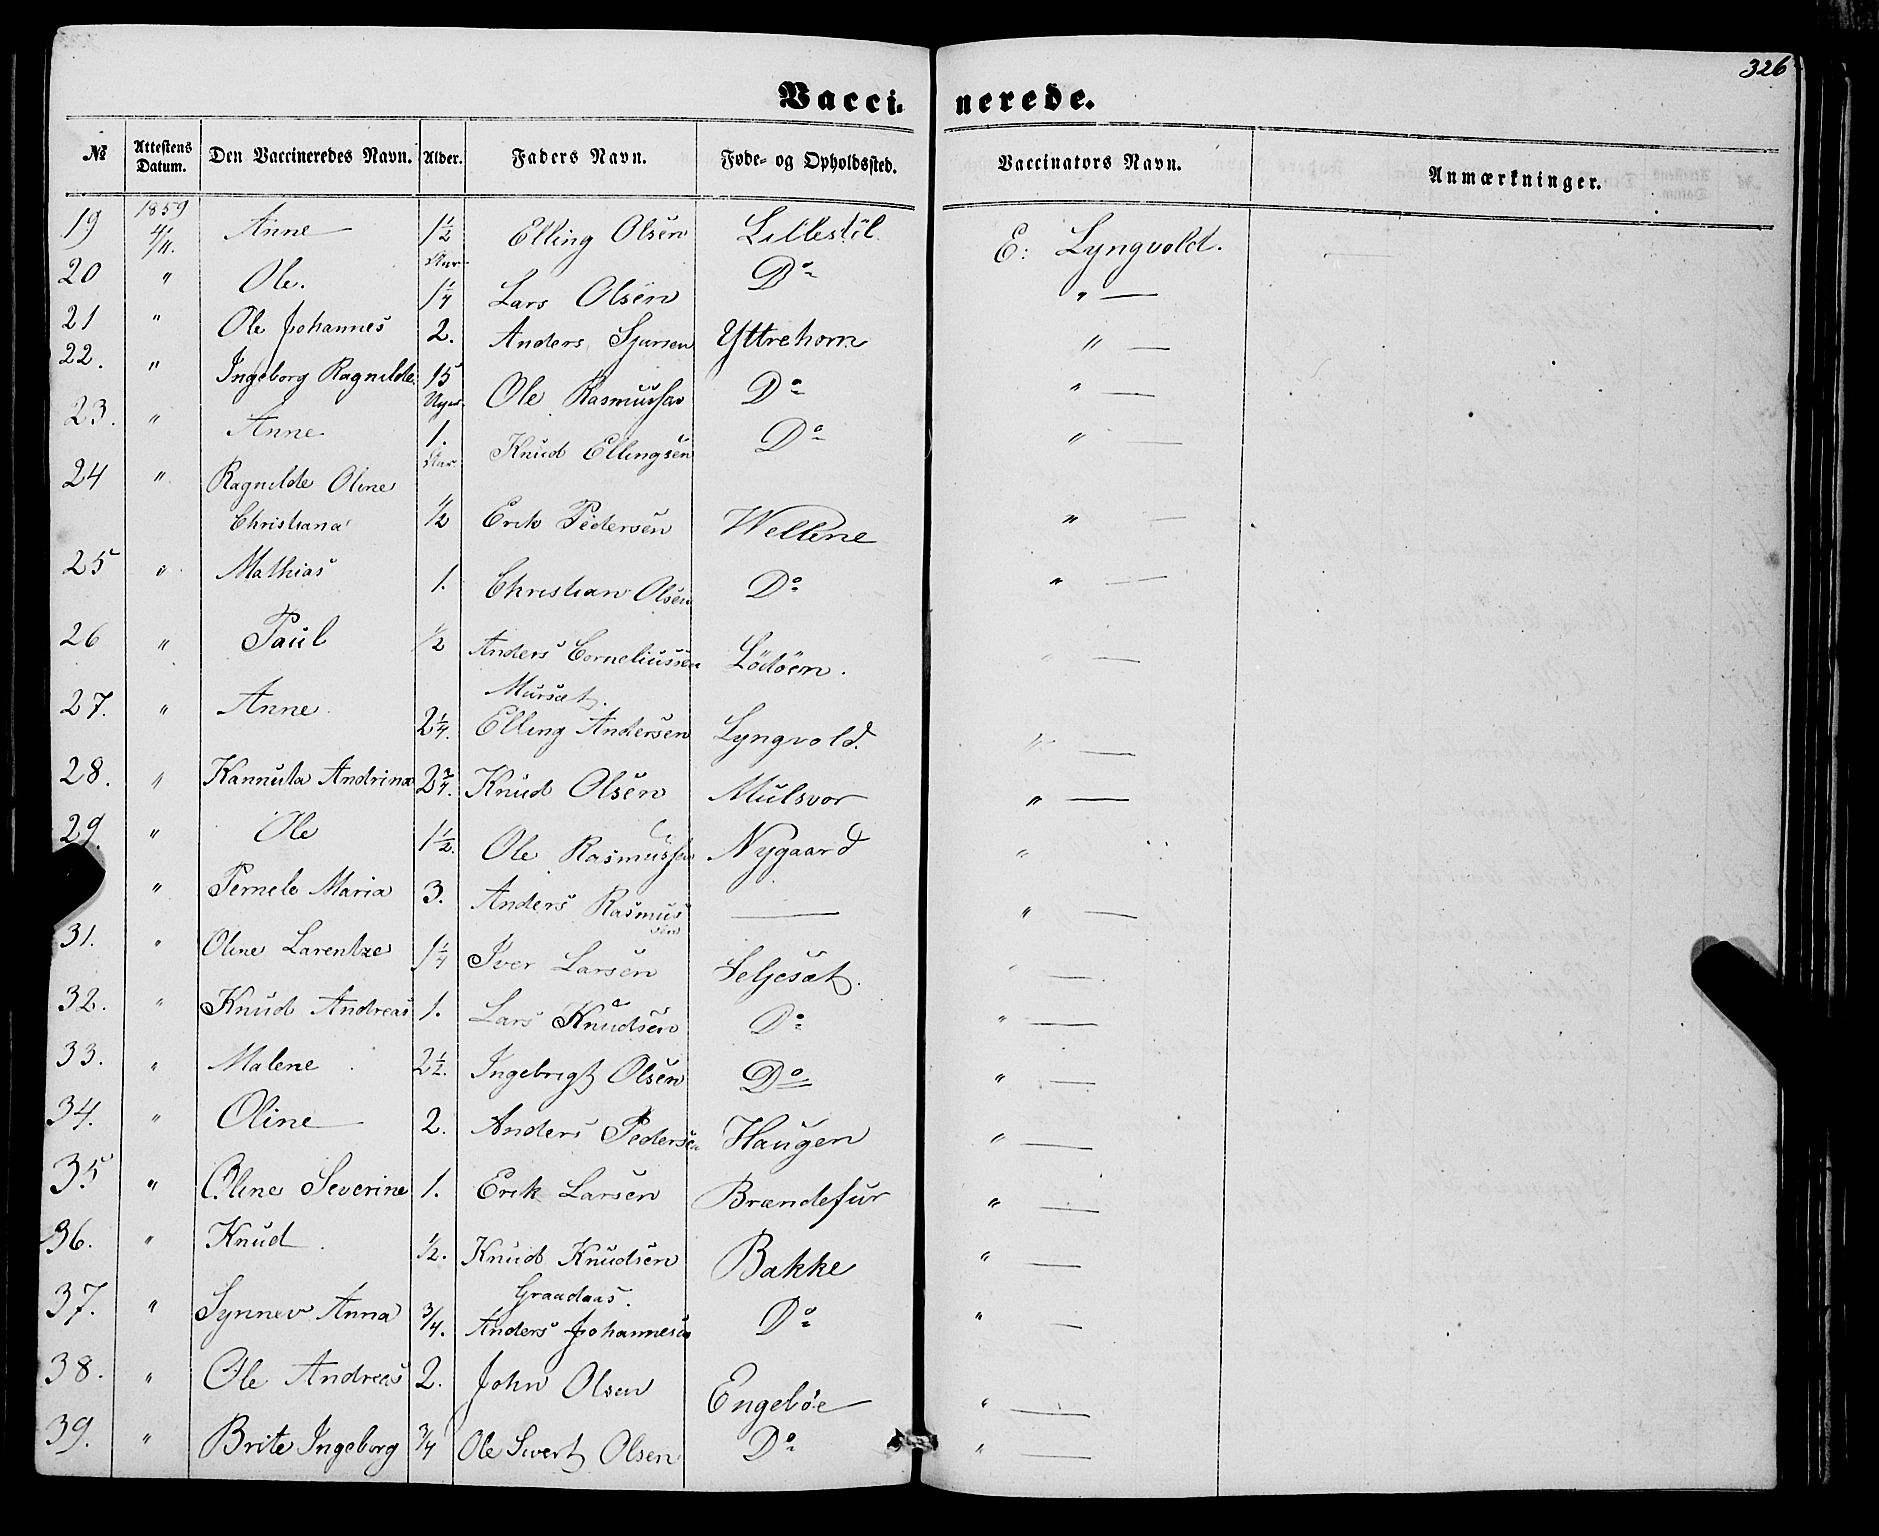 326
Vaccinerede.
№ Attestens Datum. Den Vaccineredes Navn. Alder. Faders Navn. Føde- og Opholdssted. Vaccinators Navn. Anmærkninger.
19 1859 4/11. Anne 1½ Aar. Elling Olsen Lillestöl E: Lyngvold. —
20 " Ole. 1¼ Lars Olsen Do " —
21 " Ole Johannes 2. Anders Sjursen Yttrehorn " —
22. " Ingeborg Ragnilde 15 Uger. Ole Rasmussen Do " —
23. " Anne 1. Aar. Knud Ellingsen Do " —
24 " Ragnilde Oline
Christiana ½ Erik Pedersen Wellene " —
25 " Mathias 1. Christian Olsen Do " —
26 " Paul ½ Anders Corneliussen Lödöen. " —
Mursæt.
27. " Anne 2¼. Elling Andersen Lyngvold. " —
28. " Kannuta Andrina 2¾. Knud Olsen Mulsvor " —
29. " Ole 1½. Ole Rasmussen Nygaard "
" Pernele Maria 3. Anders Rasmussen — " —
31. " Oline Larentze 1¼ Iver Larsen Seljesæt. " —
32. " Knud Andreas 1. Lars Knudsen Do " —
33. " Malene 2½. Ingebrigt Olsen Do " —
34. " Oline 2. Anders Pedersen Haugen " —
35 " Oline Severine 1. Erik Larsen Brændefur " —
36. " Knud ½. Knud Knudsen Bakke " —
Graadaas.
37. " Synnev Anna ¾. Anders Johannesen Do " —
38. " Ole Andreas 2. John Olsen Engeböe " —
39. " Brite Ingeborg ¾ Ole Sivert Olsen Do " —